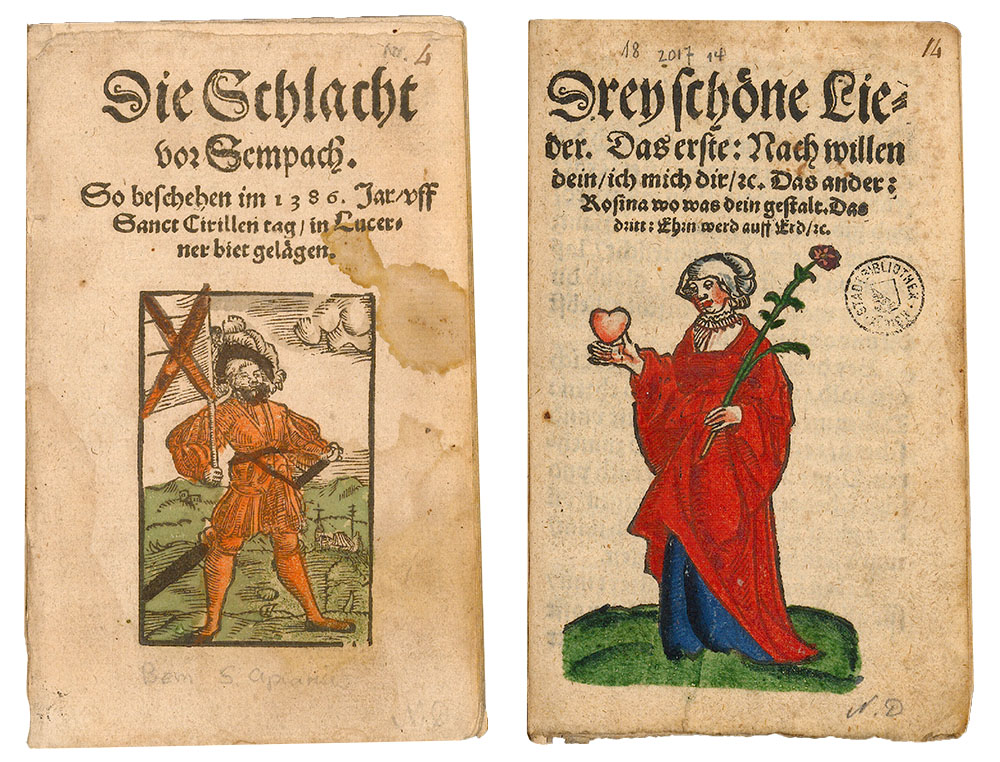 Nr. 4
Die Schlacht
vor Sempach.
So beschehen im 1386. Jar/vff
Sanct Cirillen tag/in Lucer-
ner biet gelägen.
Bern S. Apiarius
N. D
18 2017 14
14
Drey schöne Lie-
der. Das erste: Nach willen
dein/ich mich dir/ꝛc. Das ander:
Rosina wo was dein gestalt. Das
dritt: Ehrn werd auff Erd/ꝛc.
STADTBIBLIOTHEK
N. D